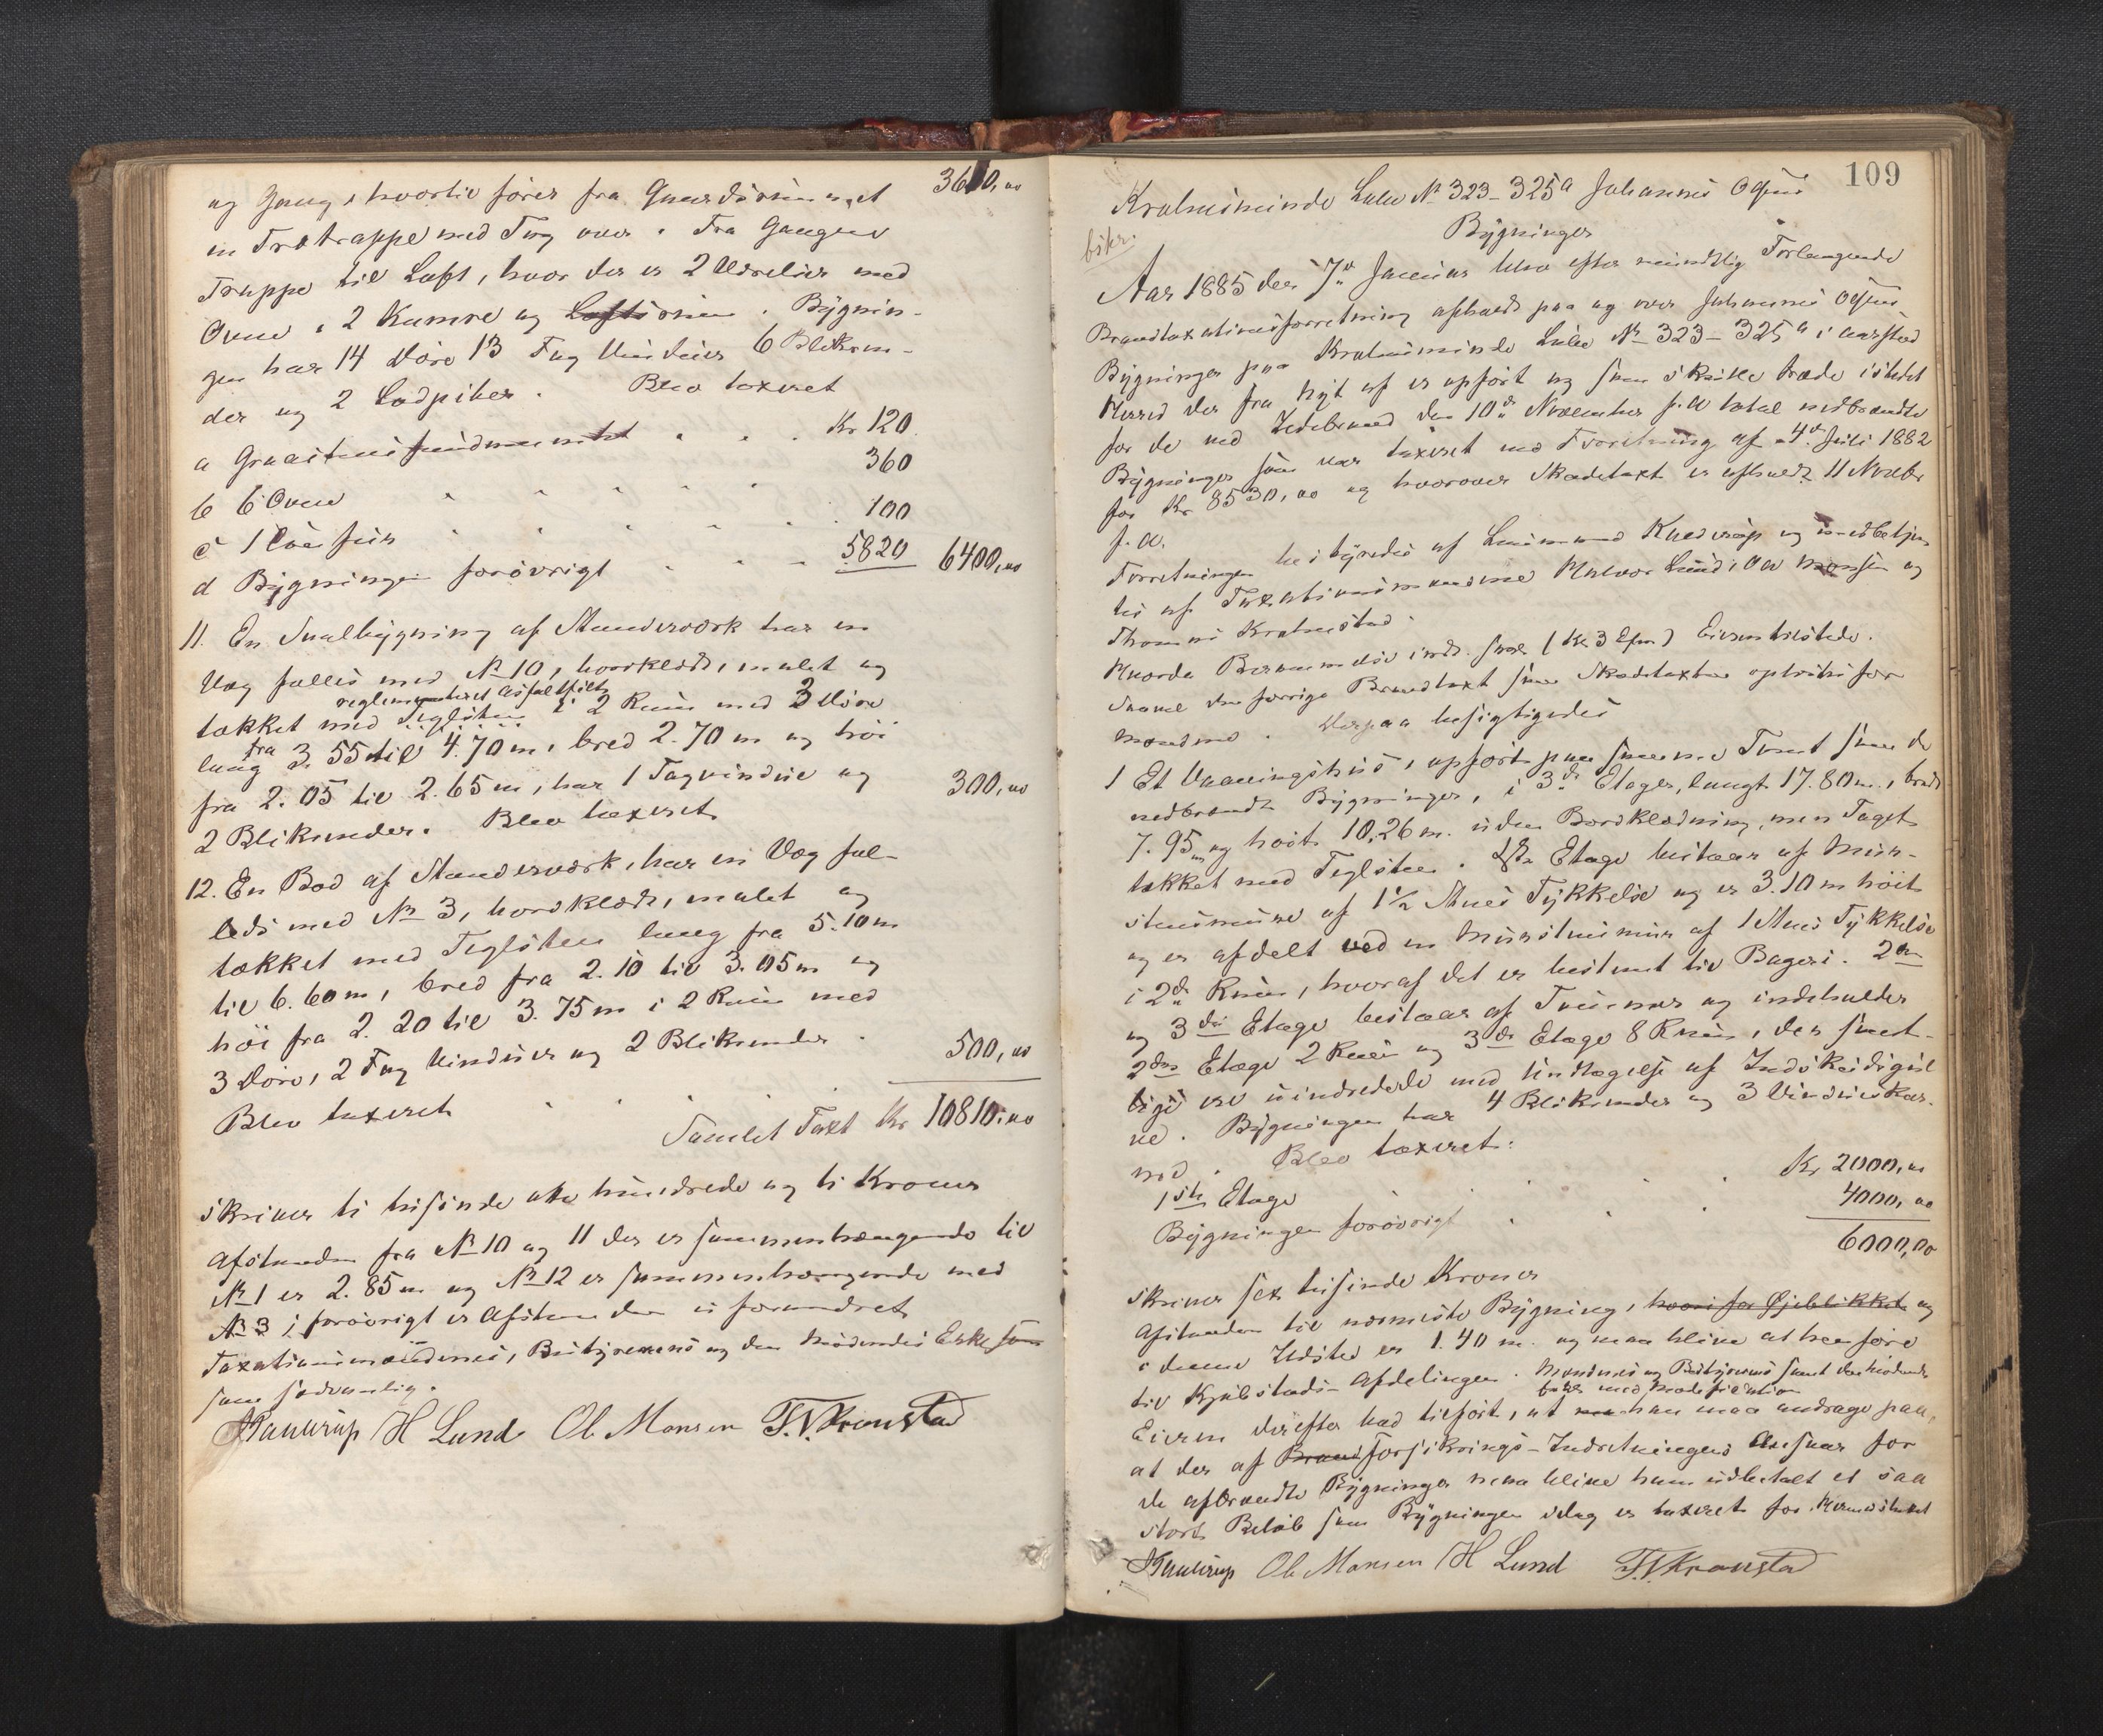 3610,00
og Gang, hvortil fører fra Gaardsrummet
en Trætrappe med Tag over. Fra Gangen
Trappe til Loft, hvor der er 2 Værelser med
Ovne, 2 Kamre og Loftsrum. Bygnin-
gen har 14 Døre 13 Fag Vinduer 6 Blikren-
der og 2 Lodpiber. Blev taxeret
a Graastensfundamentet . . . Kr 120
b 6 Ovne 360
c 1 Komfur 100
d Bygningen forøvrigt . . . 5820 6400,00
11. En Sval bygning af Stenderværk har en
Væg fælles med No 10, bordklædt, malet og
reglementeret Asfaltfilt
tækket med Teglsten i 2 Rum med 3 Døre
lang fra 3.55 til 4.70 m, bred 2.70 m og høi
fra 2.05 til 2.65 m, har 1 Tagvindue og
2 Blikrender. Blev taxeret 300,00
12. En Bod af Stenderværk, har en Væg fæl-
leds med No 3, bordklædt, malet og
tækket med Teglsten lang fra 5.10 m
til 6.60 m, bred fra 2.10 til 3.05 m og
høi fra 2.20 til 3.75 m i 2 Rum med
3 Døre, 2 Fag Vinduer og 2 Blikrender.
Blev taxeret . . . 500,00
Samlet Taxt Kr 10810,00
skriver ti tusinde otte hundrede og ti Kroner
Afstanden fra No 10 og 11 der er sammenhængende til
No 1 er 2.85 m og No 12 er sammenhængende med
No 3, forøvrigt er Afstanden uforandret
Taxationsmændenes, Bestyrerens og den mødendes
som sædvanlig.
Knudsen H Lund Ol. Monsen T. N. Kronstad
109
Kalmeminde Løbe No 323-325a Johannes Olsens
Bygninger
bskr.
Aar 1885 den 7de Januar blev efter mundtlig Forlangende
Brandtaxationsforretning afholdt paa og over Johannes Olsens
Bygninger paa Løbe No 323-325a i Aarstad
Herred der fra nyt af er opført og som skulle træde istedet
for de ved Ildebrand den 10de November f.A. total nedbrændte
Bygninger som var taxeret ved Forretning af 4de Juli 1882
for Kr 8530,00 og hvorover Skadetaxt er afholdt 11 Novbr
f.A.
Forretningen bestyredes af Lensmand og medbetjen-
tes af Taxationsmændene Halvor Lund, Ole Monsen og
Thomas Kronstad.
Eieren tilstede.
Saavel den forrige Brandtaxt som Skadetaxten oplæstes for
Mændene. Derpaa besigtigedes
1 Et Vaaningshus, opført paa samme Tomt som de
nedbrændte Bygninger, i 3de Etager, langt 17.80 m, bredt
7.95 m og høit 10,26 m. uden Bordklædning, men Taget
tækket med Teglsten. 1ste Etage bestaar af Mur-
stensmure af 1½ Stens Tykkelse og er 3.10 m høit
og er afdelt ved en Murstensmur af 1 Stens Tykkelse
i 2de Rum, hvoraf det er bestemt til Bageri. 2den
og 3die Etage bestaar af Tømmer og indeholder
2den Etage 2 Rum og 3de Etage 8 Rum, der samt-
lige ere uindredede med Undtagelse af
ne. Bygningen har 4 Blikrender og 3 Vindueskar-
me. Blev taxeret:
1ste Etage . . . Kr 2000,00
Bygningen forøvrigt . . . 4000,00
6000,00
skriver sex tusinde Kroner
Afstanden til nærmeste Bygning, hvori for Øjeblikket og
i denne Ildsted er 1.40 m. og maa blive at henføre
til Kjøbstads-Afdelingen. Mændenes og Bestyrerens samt den mødendes
Eieren derefter lod tilført, at han maa andrage paa,
at der af Brandforsikrings-Indretningens Ansvar for
de afbrændte Bygninger maa blive ham udbetalt et saa
stort Beløb som Bygningen idag er taxeret for.
Knudsen Ol. Monsen H Lund T. N. Kronstad